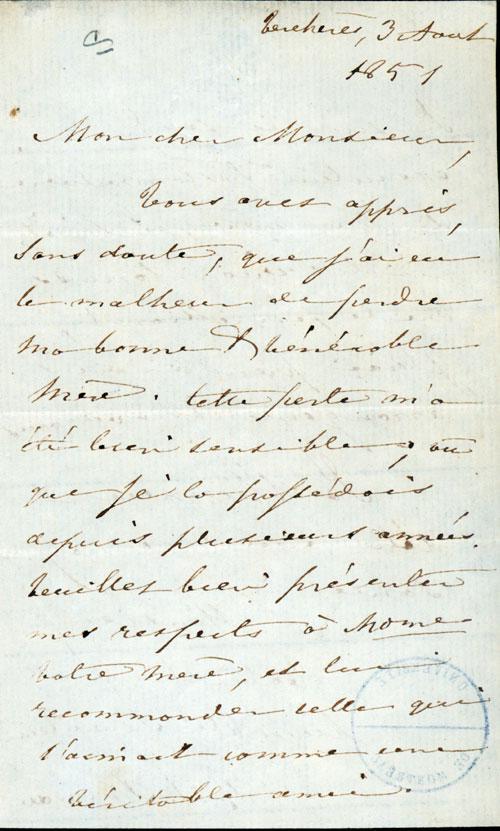 Verchères, 3 Août
1851
Mon cher Monsieur,
Vous avez appris,
sans doute, que j'ai eu
le malheur de perdre
ma bonne & vénérable
mère. Cette perte m'a
été bien sensible ; vu
que je la possédois
depuis plusieurs années.
Veuillez bien présenter
mes respects à Mame
votre mère, et lui
recommander celle qui
l'aimait comme une
véritable amie.
UNIVERSITÉ
DE MONTRÉAL